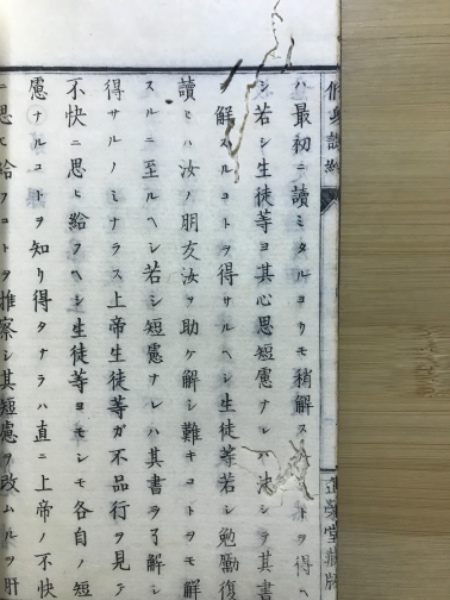 ハ最初ニ讀ミタルヨリモ稍解スルコトヲ得ヘ
シ若シ生徒等ヨ其心思短慮ナレハ決シテ其書
ヲ解スルコトヲ得サルヘシ生徒等若シ勉勵復
讀セハ汝ノ朋友汝ヲ助ケ解シ難キコトヲモ解
スルニ至ルヘシ若シ短慮ナレハ其書ヲ了解シ
得サルノミナラス上帝生徒等ガ不品行ヲ見テ
不快ニ思ヒ給フヘシ生徒等ヨモシモ各自ノ短
慮ナルコトヲ知リ得タナラハ直ニ上帝ノ不快
ニ思ヒ給フコトヲ推察シ其短慮ヲ改ムルヲ肝